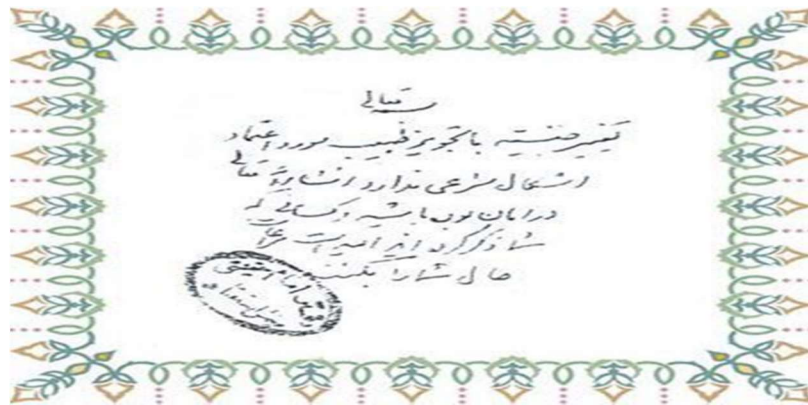 بسمه تعالی
تغییر جنسیت با تجویز طبیب مورد اعتماد
اشکال شرعی ندارد انشاءالله تعالی
در امان بوده باشید و کسانی که
شما ذکر کرده‌اید امید است مراعات
حال شما را بکنند
دفتر امام خمینی
بخش استفتاء